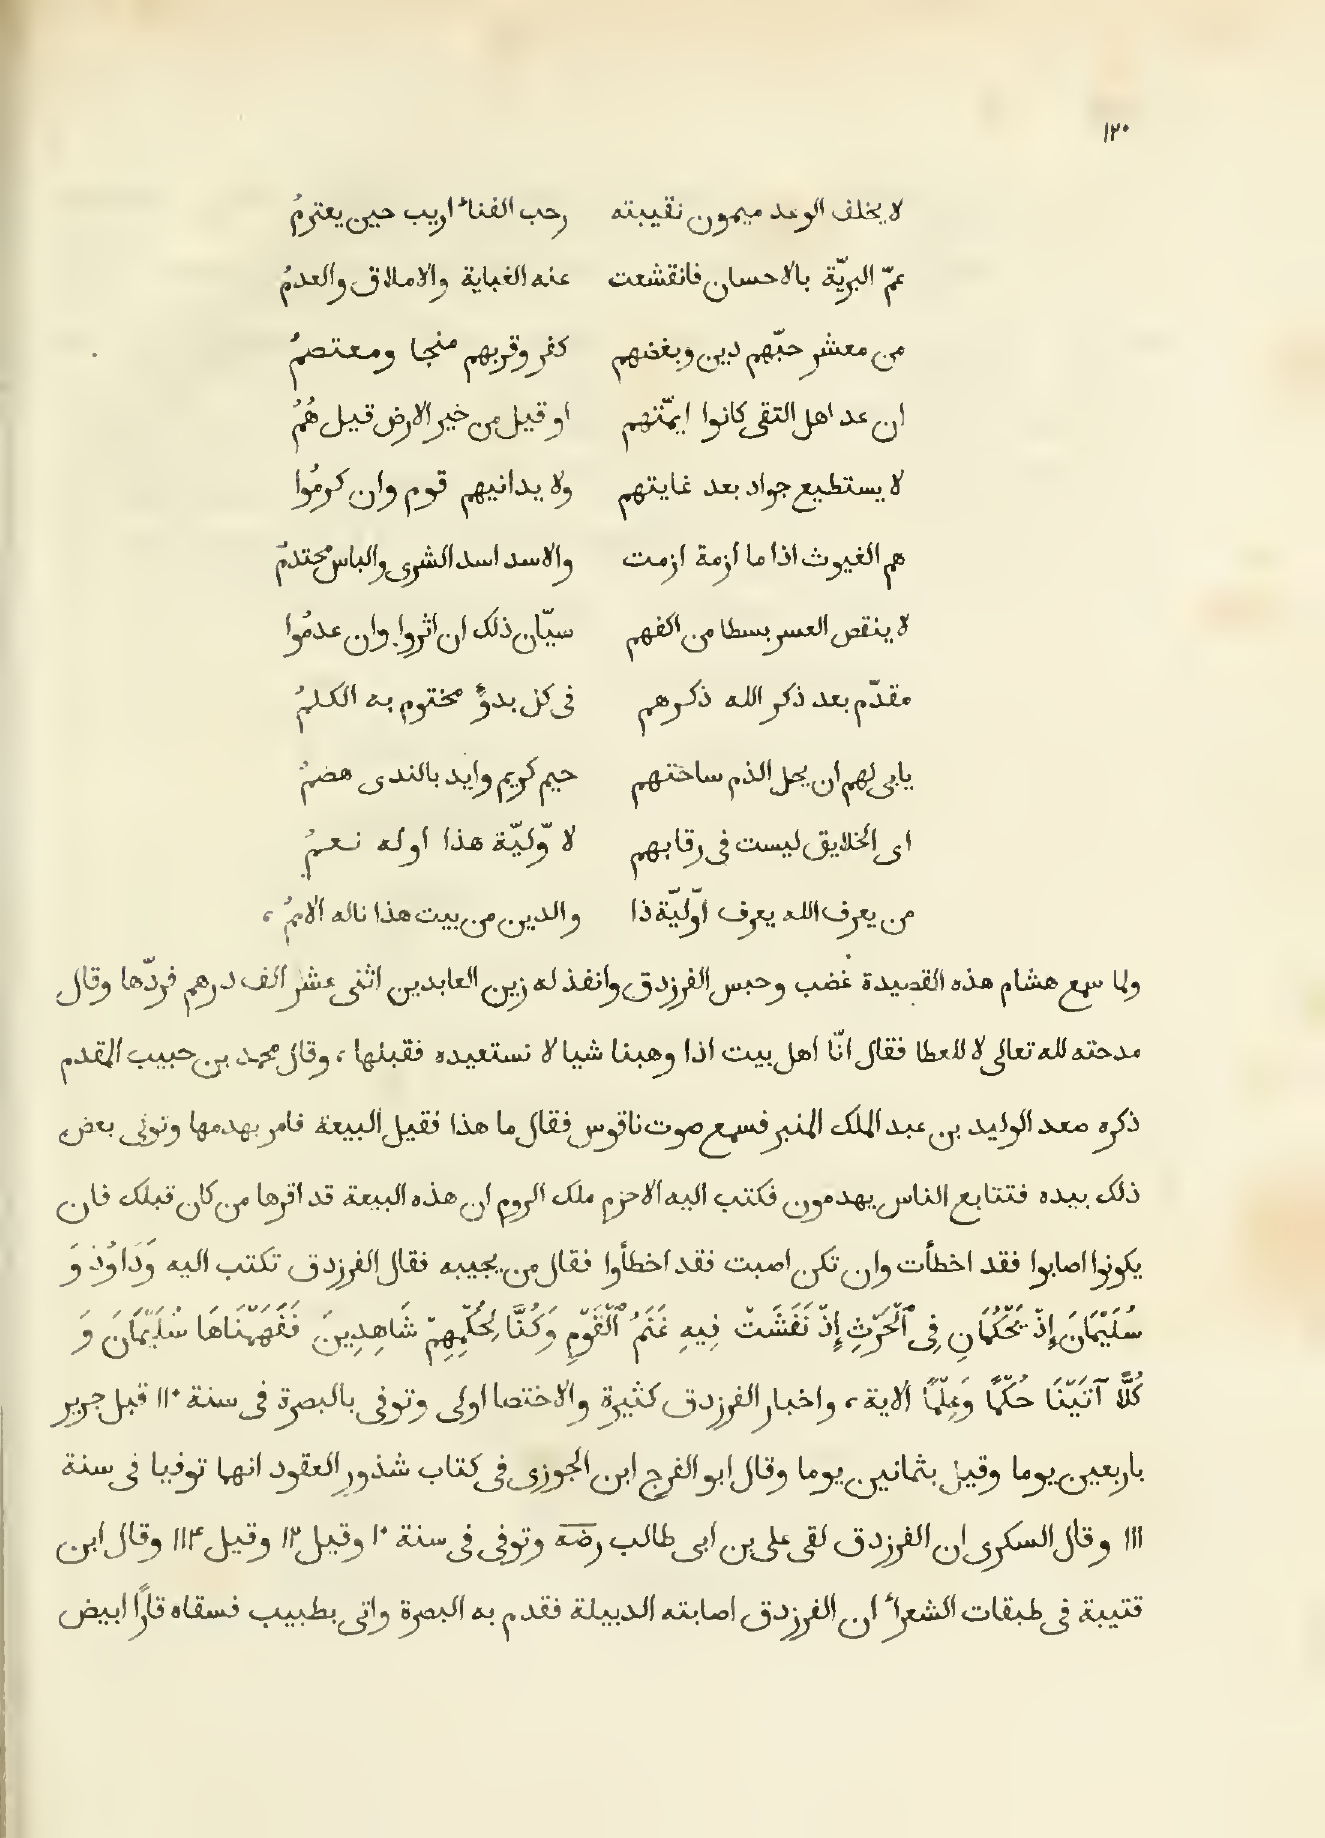 ١٢٠
لا يخلف الوعد ميمون نقيبته رحب الفناء اريب حين يعتزمُ
عمّ البريّة بالاحسان فانقشعت عنه الغياية والاملاق والعدمُ
من معشر حبّهم دين وبغضهم كفر وقربهم منجا ومعتصمُ
ان عد اهل التقى كانوا ايمّتهم او قيل من خير الارض قيل هُمُ
لا يستطيع جواد بعد غايتهم ولا يدانيهم قوم وان كرمُوا
هم الغيوث اذا ما ازمة ازمت والاسد اسد الشرى والباس محتدمُ
لا ينقص العسر بسطا من اكفهم سيّان ذلك ان اثروا وان عدمُوا
مقدّم بعد ذكر الله ذكرهم فى كل بدوٍ مختوم به الكلمُ
يابى لهم ان يحل الذم ساحتهم خيم كريم وايد بالندى هضمُ
اى الخلايق ليست فى رقابهم لا وّليّة هذا اوله نعمُ
من يعرف الله يعرف اوّليّة ذا والدين من بيت هذا ناله الاممُ ،
ولما سمع هشام هذه القصيدة غضب وحبس الفرزدق وانفذ له زين العابدين اثنى عشر الف درهم فردّها وقال
مدحته لله تعالى لا للعطا فقال انّا اهل بيت اذا وهبنا شيا لا نستعيده فقبلها ، وقال محمد بن حبيب المقدم
ذكره صعد الوليد بن عبد الملك المنبر فسمع صوت ناقوس فقال ما هذا فقيل البيعة فامر بهدمها وتولى بعض
ذلك بيده فتتابع الناس يهدمون فكتب اليه الاخرم ملك الروم ان هذه البيعة قد اقرها من كان قبلك فان
يكونوا اصابوا فقد اخطأت وان تكن اصبت فقد اخطأوا فقال من يجيبه فقال الفرزدق تكتب اليه وَدَاوُدَ وَ
سُلَيْمَانَ إِذْ يَحْكُمَانِ فِى ٱلْحَرْثِ إِذْ نَفَشَتْ فِيهِ غَنَمُ ٱلْقَوْمِ وَكُنَّا لِحُكْمِهِمْ شَاهِدِينَ فَفَهَّمْنَاهَا سُلَيْمَانَ وَ
كُلًّا آتَيْنَا حُكْمًا وَعِلْمًا الاية ، واخبار الفرزدق كثيرة والاختصا اولى وتوفى بالبصرة فى سنة ١١٠ قبل جرير
باربعين يوما وقيل بثمانين يوما وقال ابو الفرج ابن الجوزى فى كتاب شذور العقود انهما توفيا فى سنة
١١١ وقال السكرى ان الفرزدق لقى على بن ابى طالب رضه وتوفى فى سنة ١٠ وقيل ١٢ وقيل ١١٤ وقال ابن
قتيبة فى طبقات الشعراء ان الفرزدق اصابته الدبيلة فقدم به البصرة واتى بطبيب فسقاه قارًا ابيض